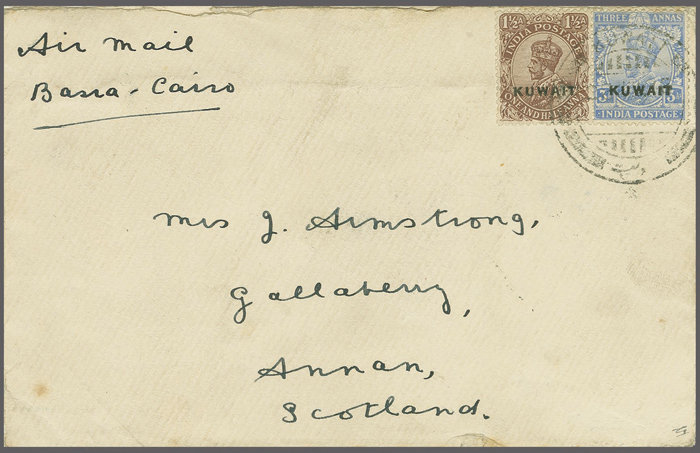 Air Mail
Basra - Cairo
1½As 1½As
INDIA POSTAGE
KUWAIT
ONE AND HALF ANNAS
THREE ANNAS
KUWAIT
3As
INDIA POSTAGE
Mrs J. Armstrong,
Gallaberry,
Annan,
Scotland.